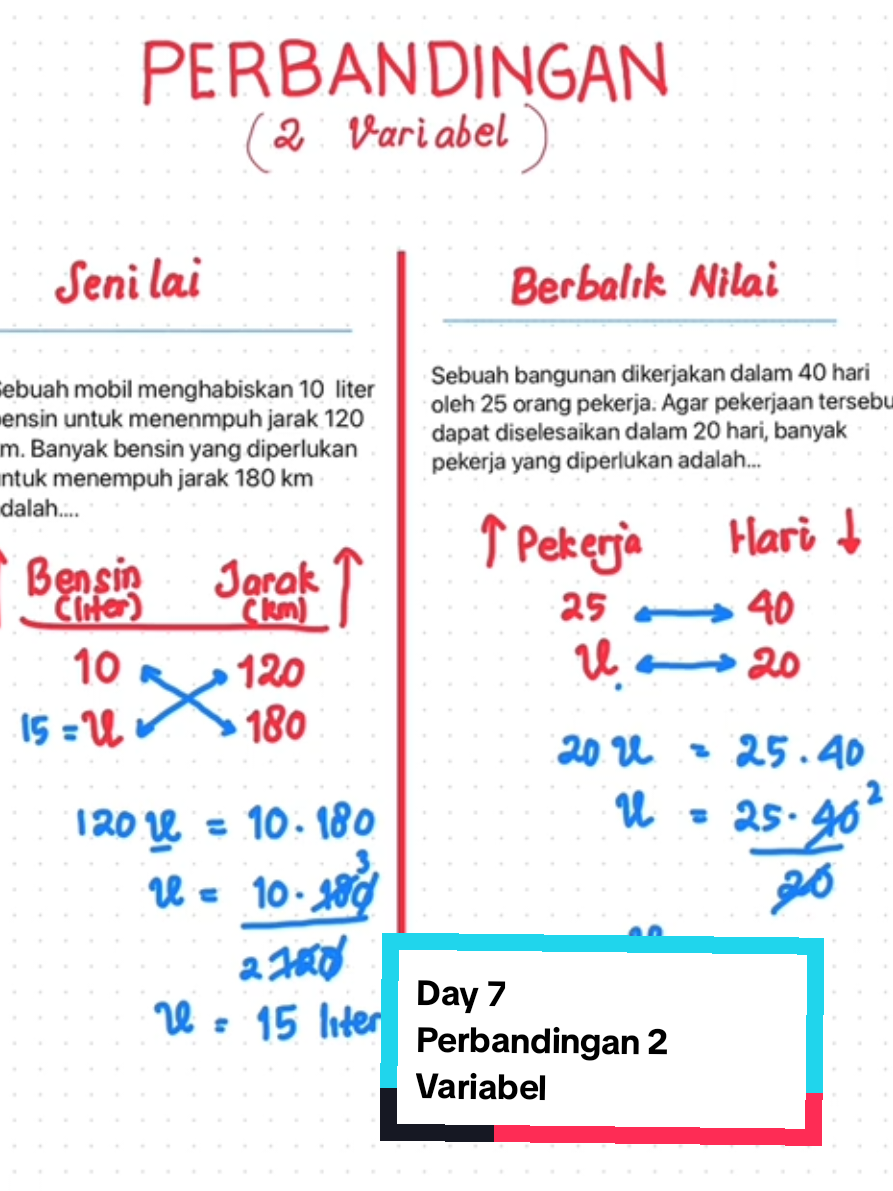 PERBANDINGAN
(2 Variabel)
Senilai
Sebuah mobil menghabiskan 10 liter
bensin untuk menenmpuh jarak 120
m. Banyak bensin yang diperlukan
ntuk menempuh jarak 180 km
dalah....
↑ Bensin Jarak ↑
(liter) (km)
10 120
15 = x 180
120 x = 10 . 180
x = 10 . 180 3
2 120
x = 15 liter
Berbalik Nilai
Sebuah bangunan dikerjakan dalam 40 hari
oleh 25 orang pekerja. Agar pekerjaan tersebu
dapat diselesaikan dalam 20 hari, banyak
pekerja yang diperlukan adalah...
↑ Pekerja Hari ↓
25 ↔ 40
x ↔ 20
20 x = 25 . 40
x = 25 . 40 2
20
Day 7
Perbandingan 2
Variabel